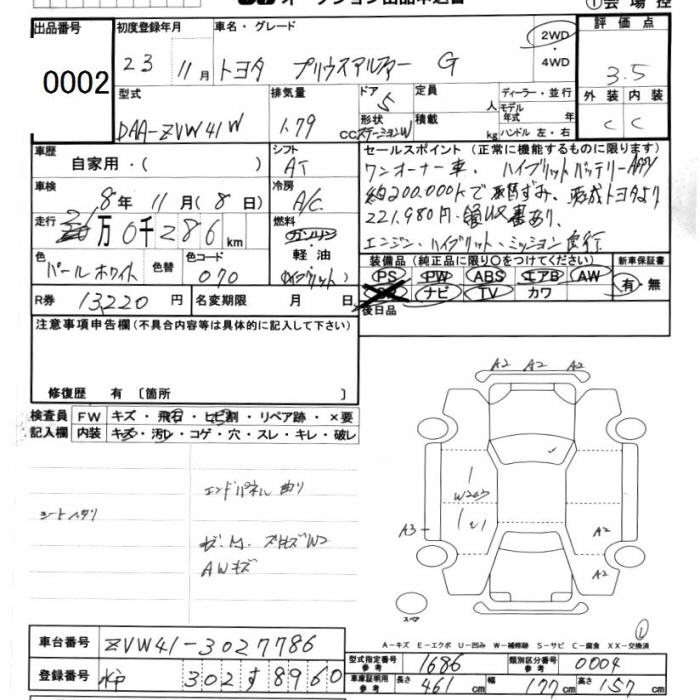 オークション出品申込書
①会場控
出品番号 初度登録年月 車名・グレード 評価点
0002 23 11月 トヨタ プリウスアルファー G 2WD・4WD 3.5
型式 排気量 ドア 定員 ディーラー・並行 外装 内装
DAA-ZVW41W 1.79 CC 5 人 モデル年式 年式 C C
形状 積載 ハンドル 左・右
ステーションW kg
車歴 シフト セールスポイント(正常に機能するものに限ります)
自家用・( ) AT ワンオーナー車、ハイブリットバッテリー
車検 冷房 約200.000kで 済み、
8年11月(8日) A/C 221.980円 領収書あり、
走行 燃料 エンジン、ハイブリット、ミッション
万0千286km ガソリン・軽油 (ハイブリット)
装備品(純正品に限り○をつけてください) 新車保証書
色 色替 色コード PS PW ABS エアB AW 有・無
パールホワイト 070 ナビ TV カワ
R券 13220円 名変期限 月 日 後日品
注意事項申告欄(不具合内容等は具体的に記入して下さい)
修復歴 有〔箇所 〕
検査員 FW キズ・飛石・ヒビ割・リペア跡・×要
記入欄 内装 キズ・汚レ・コゲ・穴・スレ・キレ・破レ
エンドパネル曲り
シートヘタリ
AWキズ
A2 A2 A2
A3 A2
A2
スペア
①
A-キズ E-エクボ U-凹み W-補修跡 S-サビ C-腐食 XX-交換済
車台番号 ZVW41-3027786
登録番号 302す8960
型式指定番号 参考 1686 類別区分番号 参考 0004
車庫証明用 参考 長さ 461cm 幅 177cm 高さ 157cm